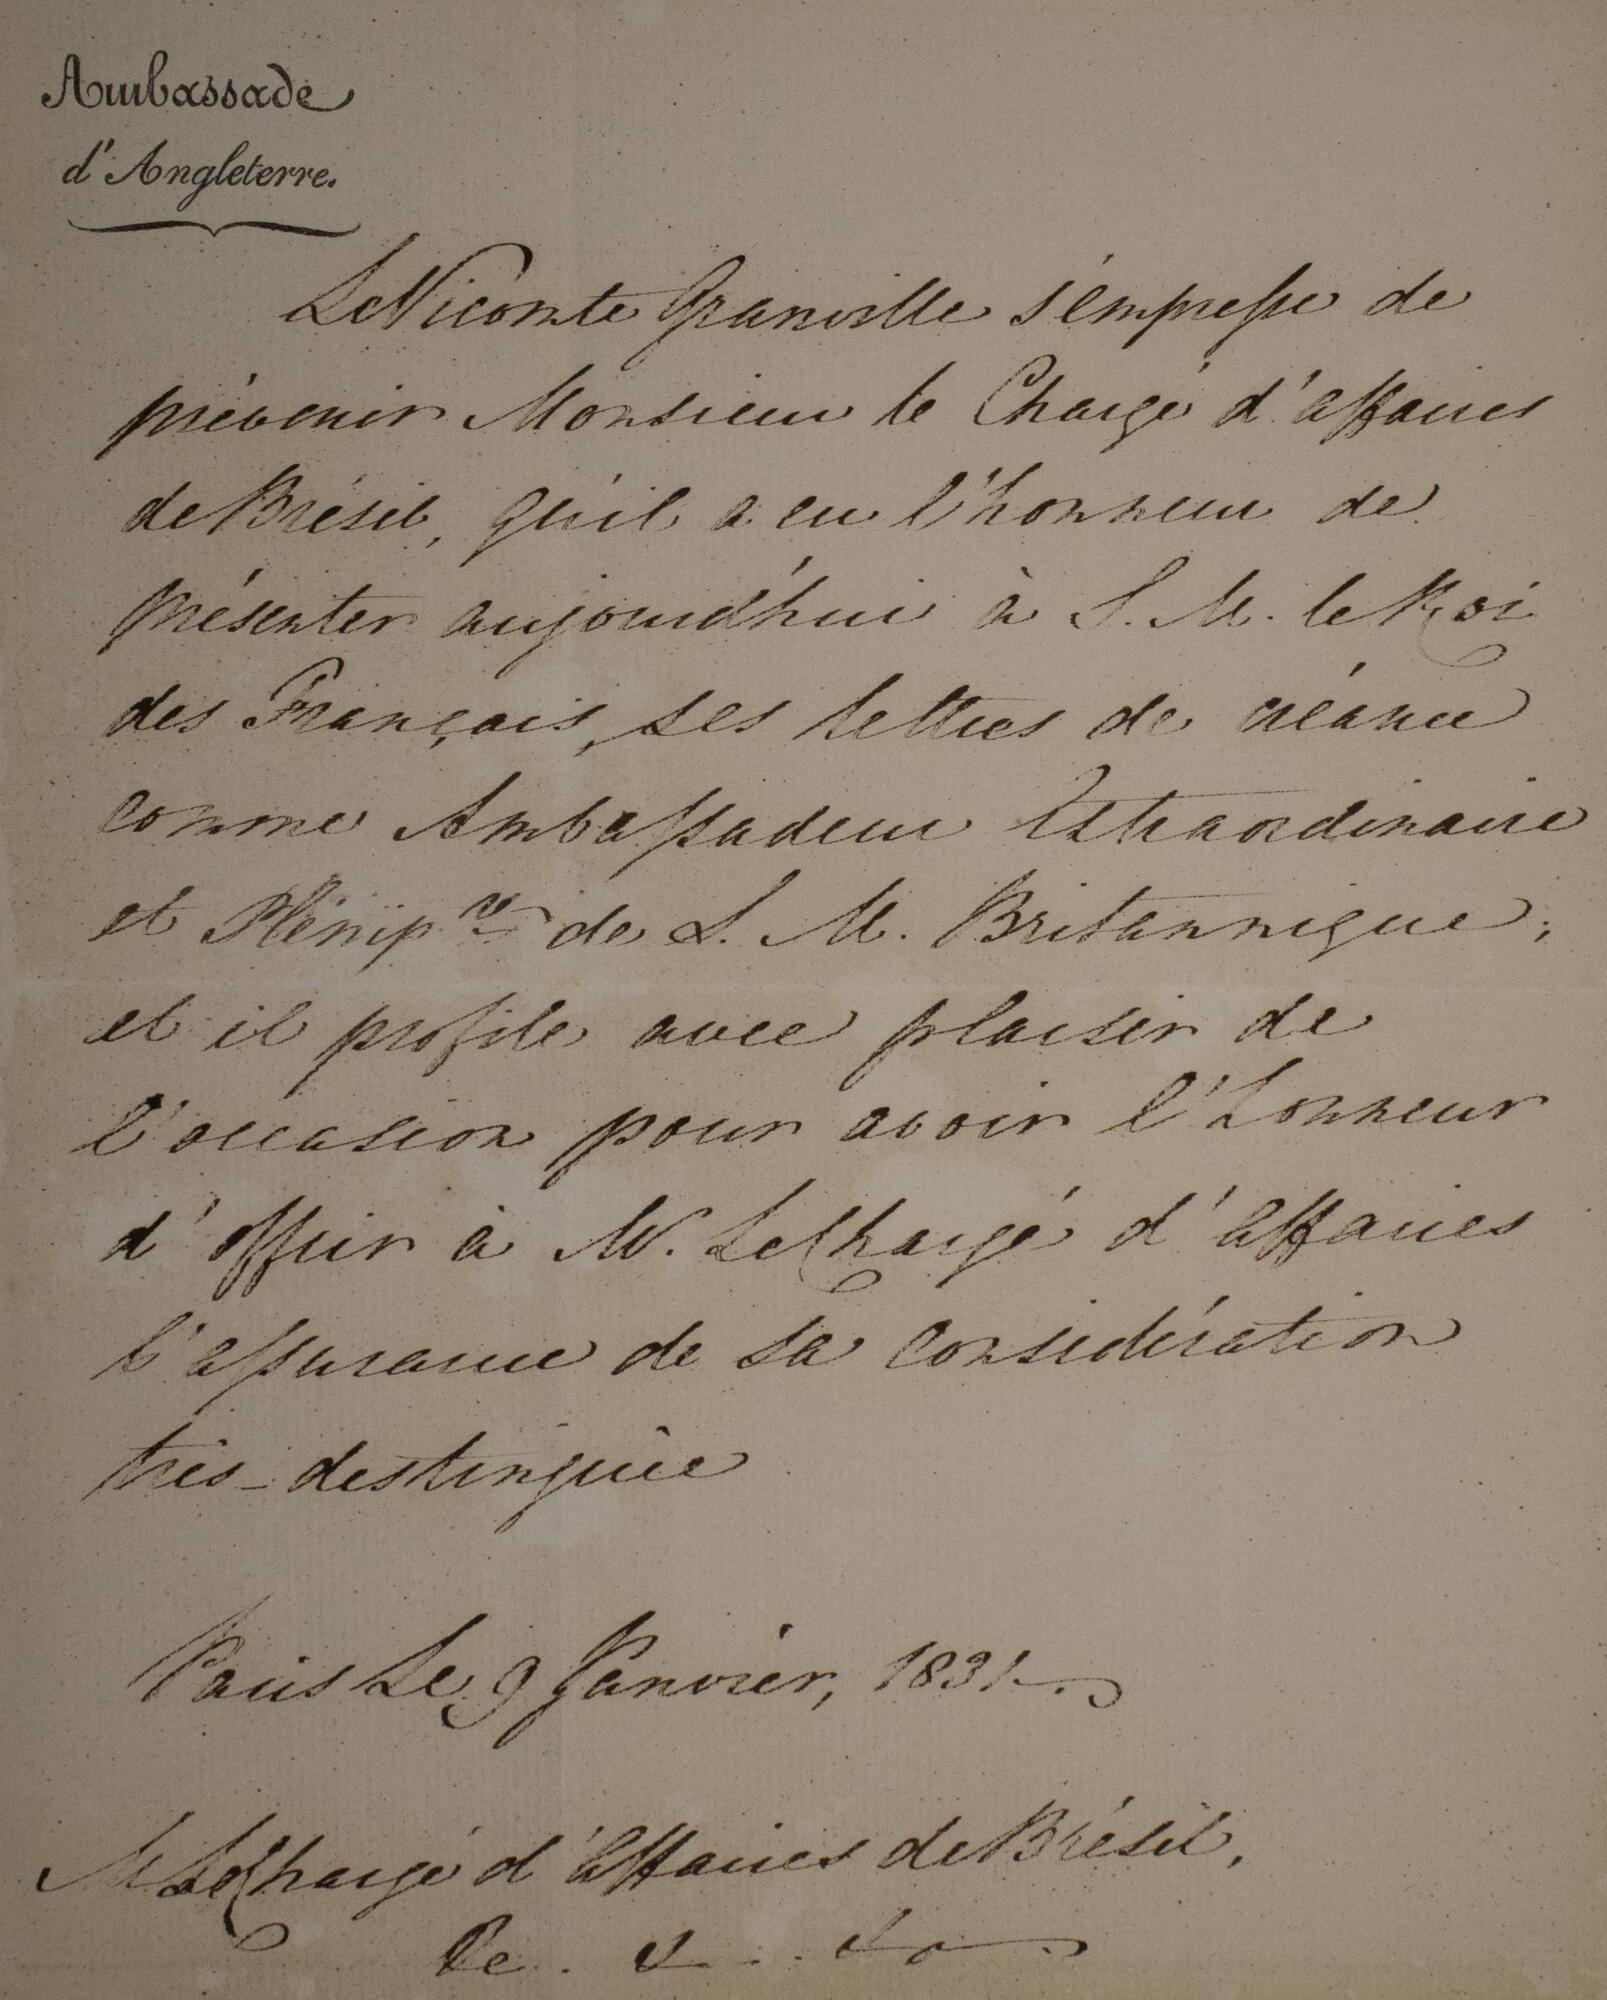 Ambassade
d'Angleterre.
Le Vicomte Granville s'empresse de
prévenir Monsieur le Chargé d'affaires
de Brésil, qu'il a eu l'honneur de
présenter aujourd'hui à S. M. le Roi
des Français, ses lettres de créance
comme Ambassadeur Extraordinaire
et Plénipre de S. M. Britannique;
et il profite avec plaisir de
l'occasion pour avoir l'honneur
d'offrir à M. Le Chargé d'affaires
l'assurance de sa considération
très-distinguée
Paris Le 9 Janvier, 1831.
M Le Chargé d'affaires de Brésil,